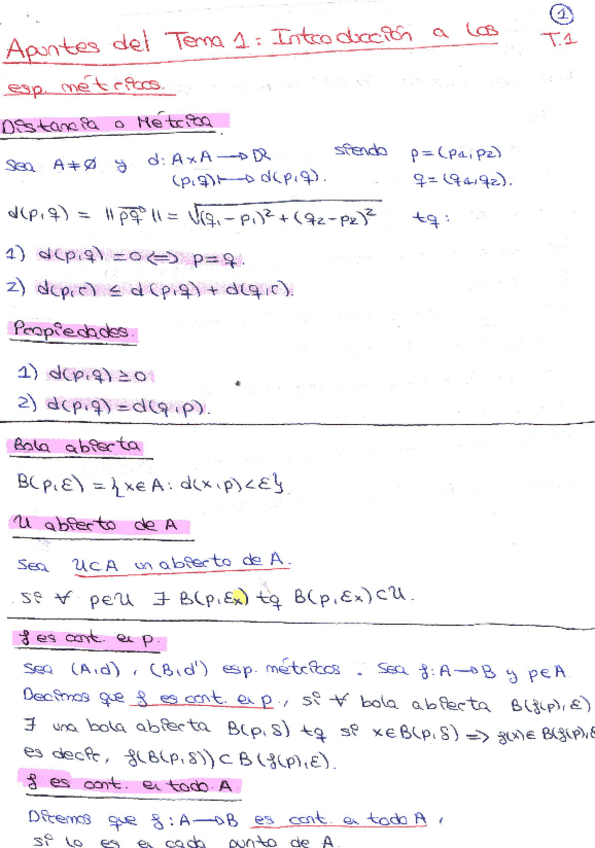 1
Apuntes del Tema 1: Introducción a los
T.1
esp. métricos.
Distancia o Métrica
Sea A≠∅ y d: A×A → ℝ siendo p=(p1,p2)
(p,q) ↦ d(p,q). q=(q1,q2).
d(p,q) = ||pq|| = √(q1-p1)²+(q2-p2)² tq:
1) d(p,q)=0 <=> p=q.
2) d(p,r) ≤ d(p,q)+d(q,r).
Propiedades.
1) d(p,q)≥0
2) d(p,q)=d(q,p).
Bola abierta
B(p,ε) = {x∈A: d(x,p)<ε}
U abierto de A
Sea U⊂A un abierto de A.
si ∀ p∈U ∃ B(p,εx) tq B(p,εx)⊂U.
f es cont. en p.
Sea (A,d), (B,d') esp. métricos. Sea f:A→B y p∈A.
Decimos que f es cont. en p, si ∀ bola abierta B(f(p),ε)
∃ una bola abierta B(p,δ) tq si x∈B(p,δ) => f(x)∈B(f(p),ε
es decir, f(B(p,δ))⊂B(f(p),ε).
f es cont. en todo A
Diremos que f:A→B es cont. en todo A,
si lo es en cada punto de A.